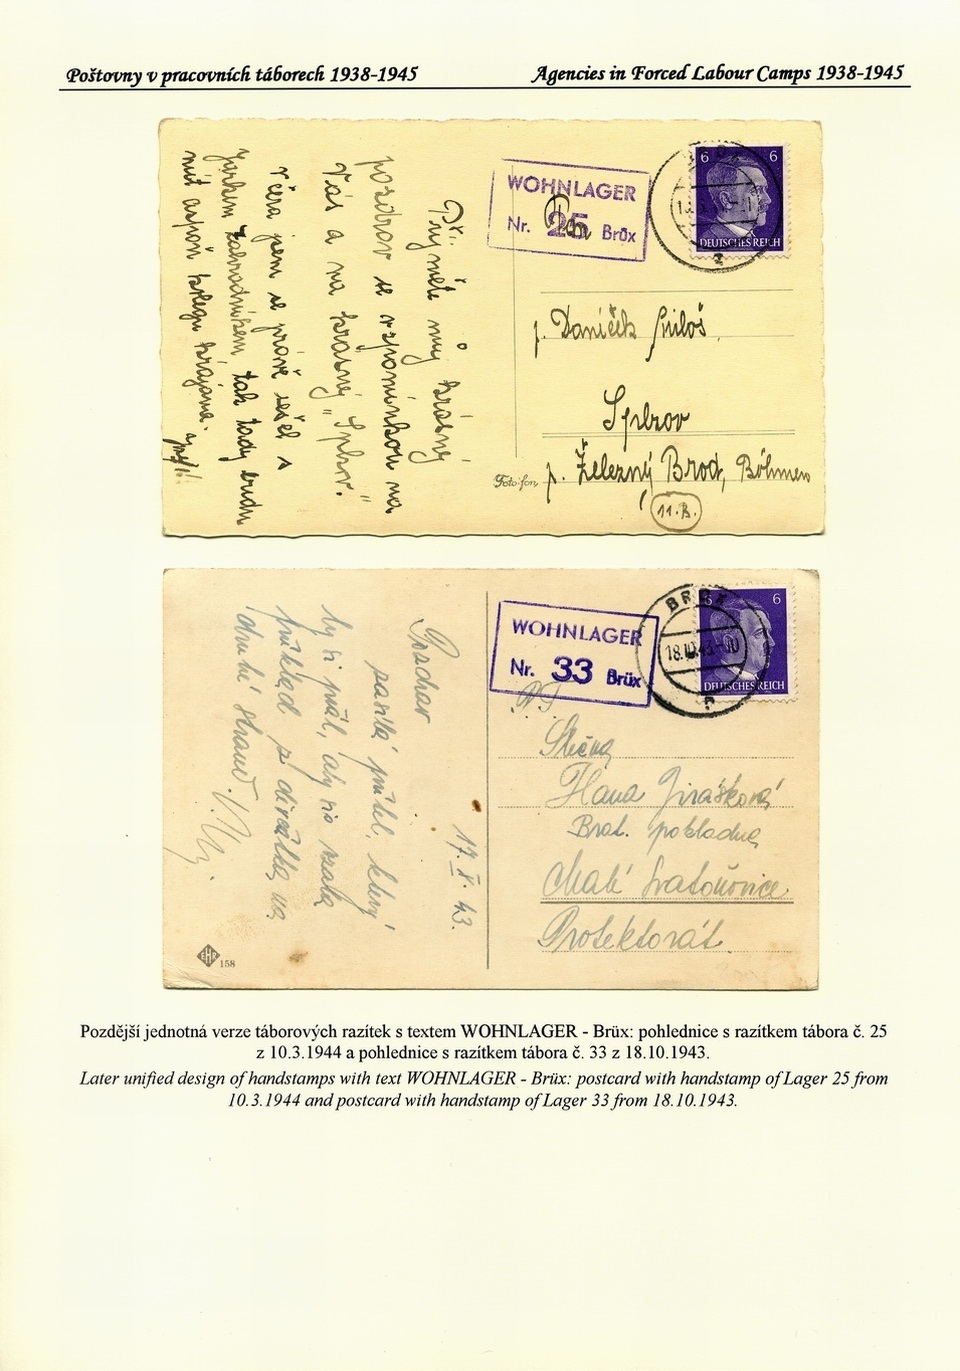 Poštovny v pracovních táborech 1938-1945
Agencies in Forced Labour Camps 1938-1945
Přijměte můj krásný
pozdrav se vzpomínkou na
Vás a na krásný „Splzov“.
Včera jsem se právě sešel s
Jarkem zahradníkem tak tady budu
mít aspoň kolegu krajana.
WOHNLAGER
Nr. 25 Brüx
Pan
6 6
DEUTSCHES REICH
p. Daníček Miloš
Splzov
p. Železný Brod, Böhmen
11.B.
Foto-fon
Pozdrav
zasílá přítel, který
by si přál, aby sis vzala
příklad z děvčátka na
druhé straně.
17.X.43.
EHR
158
WOHNLAGER
Nr. 33 Brüx
BRÜX
18.10.43.-10
6 6
DEUTSCHES REICH
Slečna
Hana Jirášková
Brat. pokladna
Malé Svatoňovice
Protektorát.
Pozdější jednotná verze táborových razítek s textem WOHNLAGER - Brüx: pohlednice s razítkem tábora č. 25
z 10.3.1944 a pohlednice s razítkem tábora č. 33 z 18.10.1943.
Later unified design of handstamps with text WOHNLAGER - Brüx: postcard with handstamp of Lager 25 from
10.3.1944 and postcard with handstamp of Lager 33 from 18.10.1943.